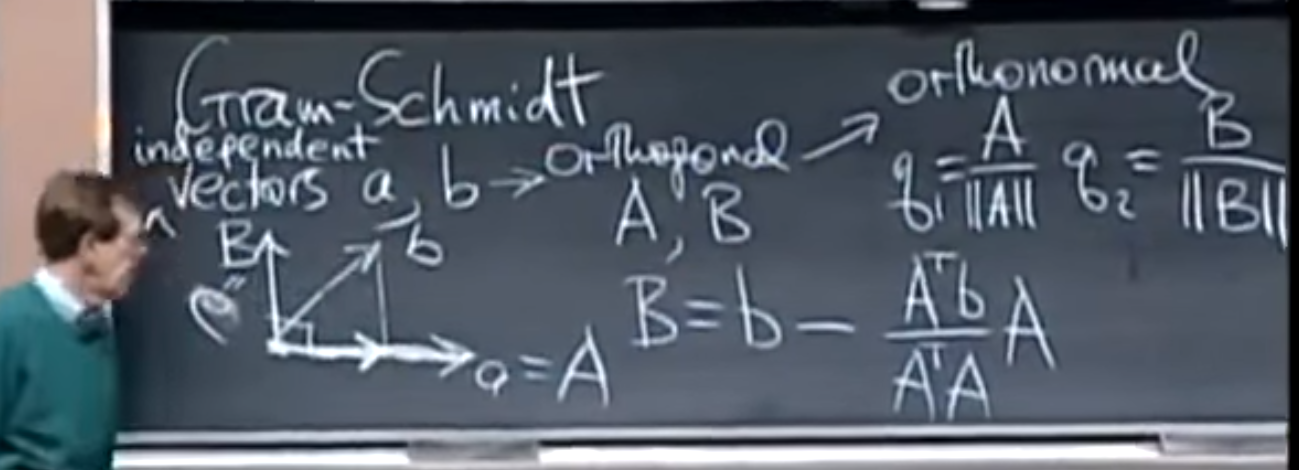 Gram-Schmidt
independent
vectors a, b → orthogonal → orthonormal
A, B
q₁ = A/||A|| q₂ = B/||B||
B
b
e
a = A
B = b − (Aᵀb/AᵀA) A